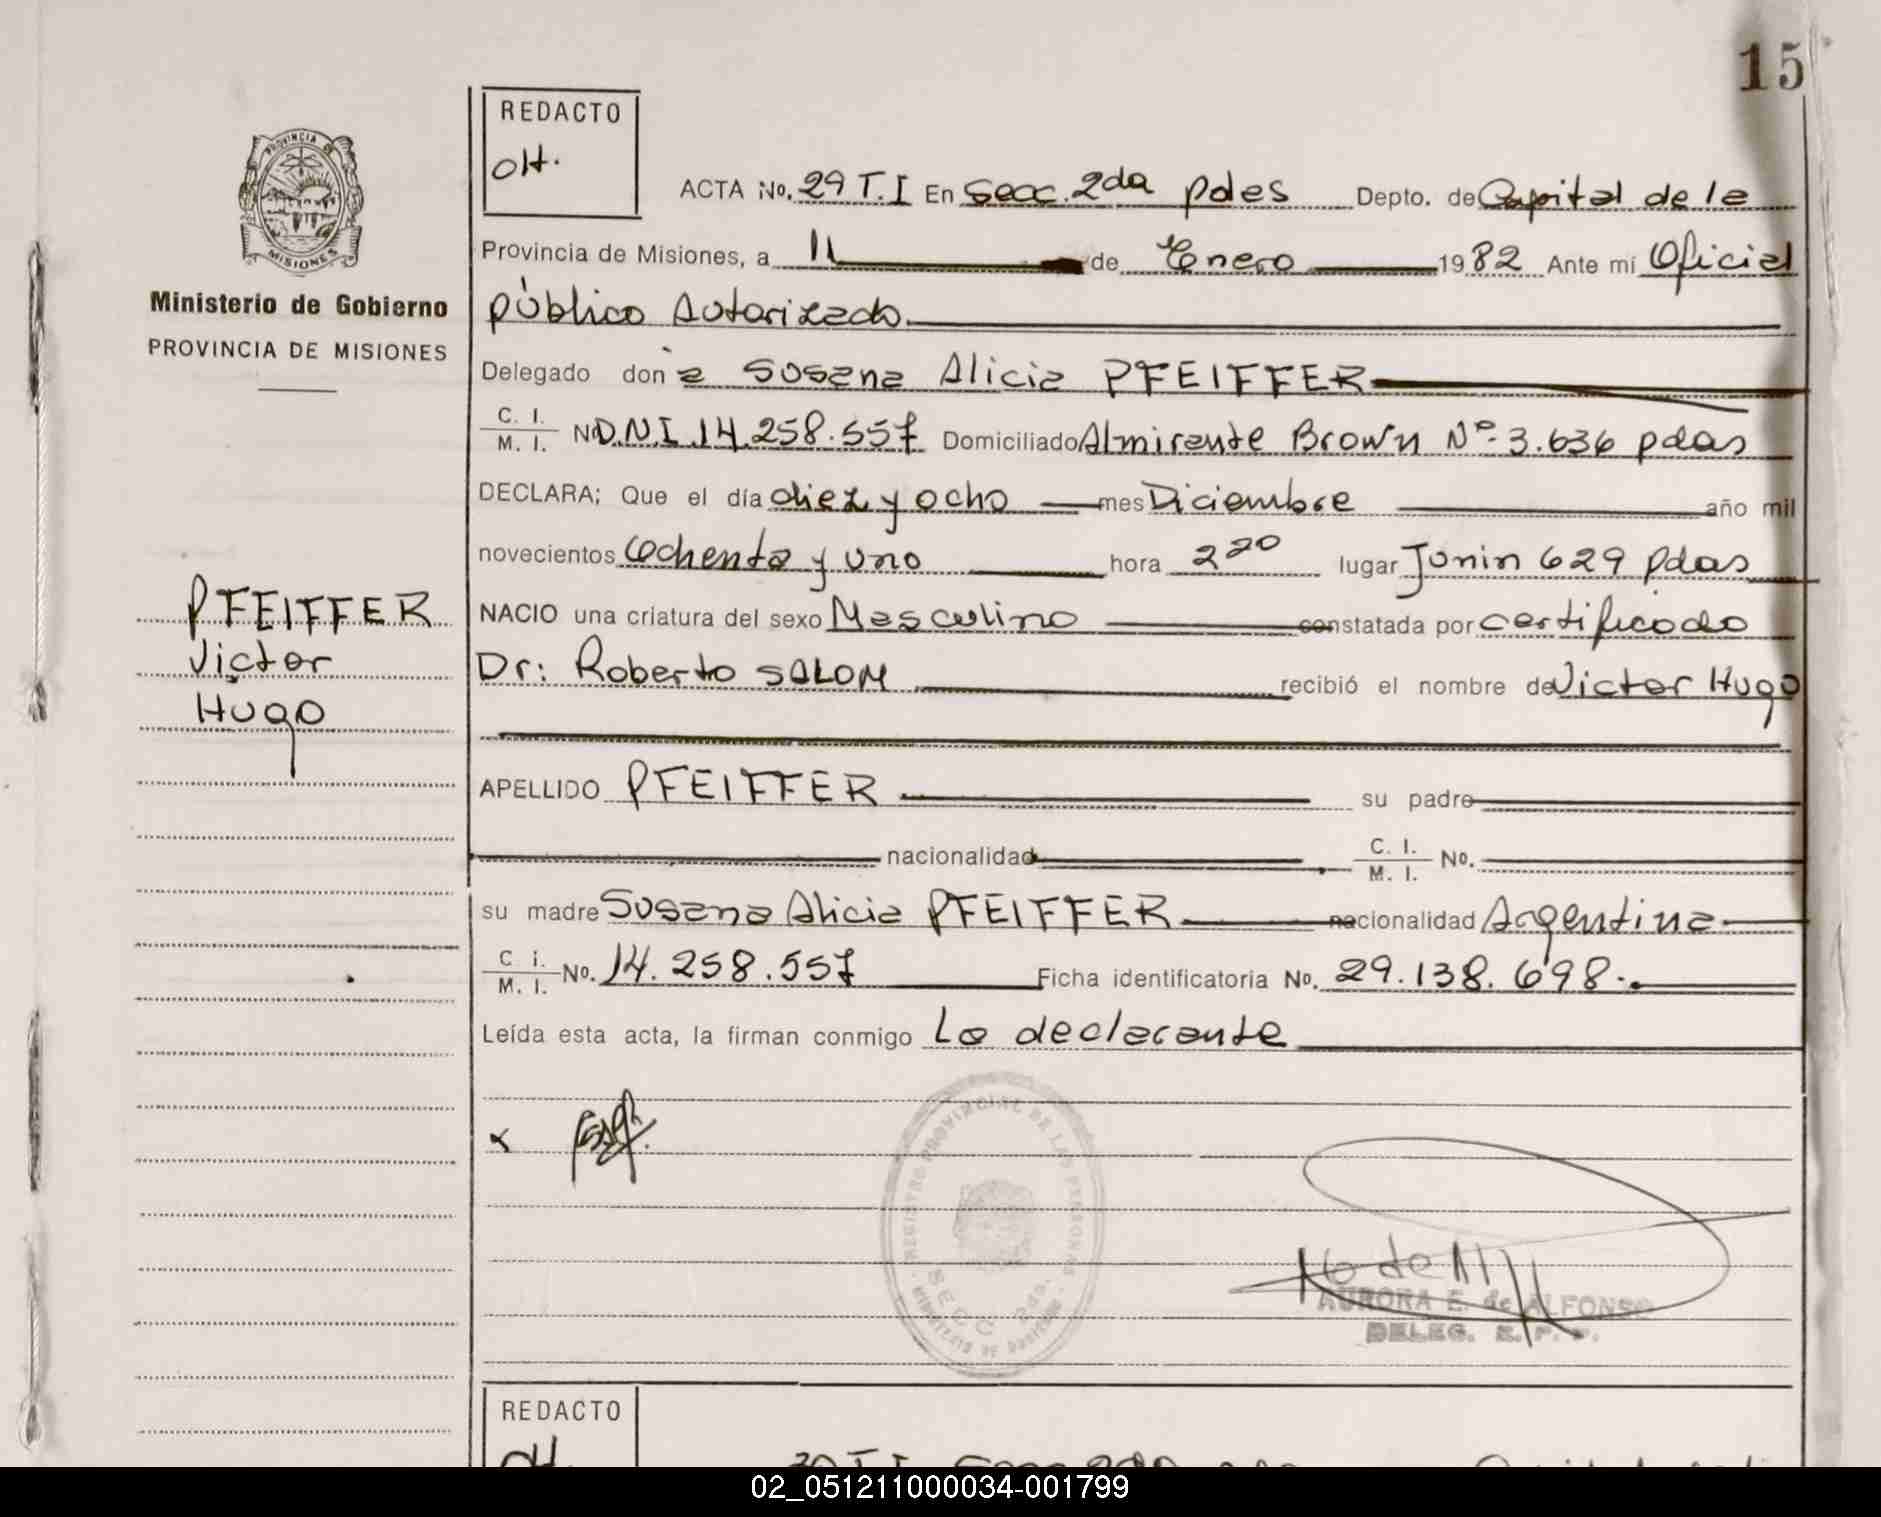 15
REDACTO
OH.
PROVINCIA DE
MISIONES
Ministerio de Gobierno
PROVINCIA DE MISIONES
ACTA No. 29 T.I En Secc. 2da pdes Depto. de Capital de la
Provincia de Misiones, a 11 de Enero 1982 Ante mí Oficial
público Autorizado
Delegado don a Susana Alicia PFEIFFER
C. I.
M. I. No D.N.I 14.258.557 Domiciliado Almirante Brown Nº 3.636 pdas
DECLARA; Que el día diez y ocho mes Diciembre año mil
novecientos Ochenta y uno hora 2 20 lugar Junin 629 Pdas
NACIO una criatura del sexo Masculino constatada por certificado
Dr: Roberto SALOM recibió el nombre de Victor Hugo
PFEIFFER
Victor
Hugo
APELLIDO PFEIFFER su padre
nacionalidad C. I.
M. I. No.
su madre Susana Alicia PFEIFFER nacionalidad Argentina
C i.
M. I. No. 14.258.557 Ficha identificatoria No. 29.138.698.
Leída esta acta, la firman conmigo La declarante
REGISTRO PROVINCIAL DE LAS PERSONAS
SECC 2da.
MINISTERIO DE GOBIERNO
AURORA E. de ALFONSO
DELEG. R. P. P.
REDACTO
OH.
02_051211000034-001799